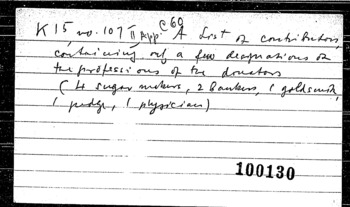 K 15 no. 107 II App. c 60 A list of contributors,
containing only a few designations of
the professions of the donators
(4 sugar makers, 2 bankers, 1 goldsmith,
1 judge, 1 physician)
100130